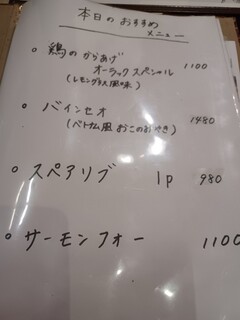 本日のおすすめ
メニュー
○ 鶏のからあげ
オーラックスペシャル 1100
(レモングラス風味)
○ バインセオ 1480
(ベトナム風おこのみやき)
○ スペアリブ 1p 980
○ サーモンフォー 1100